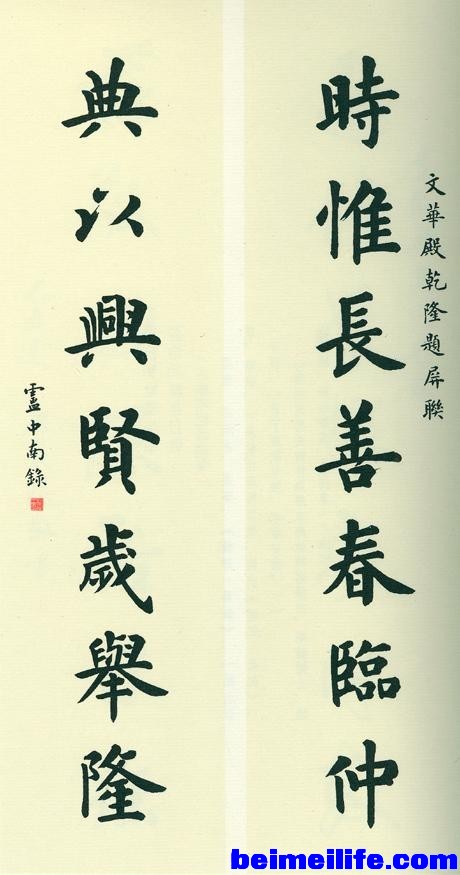 文華殿乾隆題屏聯
時惟長善春臨仲
典以興賢歲舉隆
盧中南錄
beimeilife.com